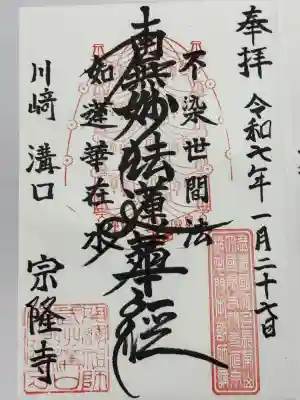 奉拝
令和七年一月二十六日
不染世間法
南無妙法蓮華経
如蓮華在水
川崎 溝口
宗隆寺